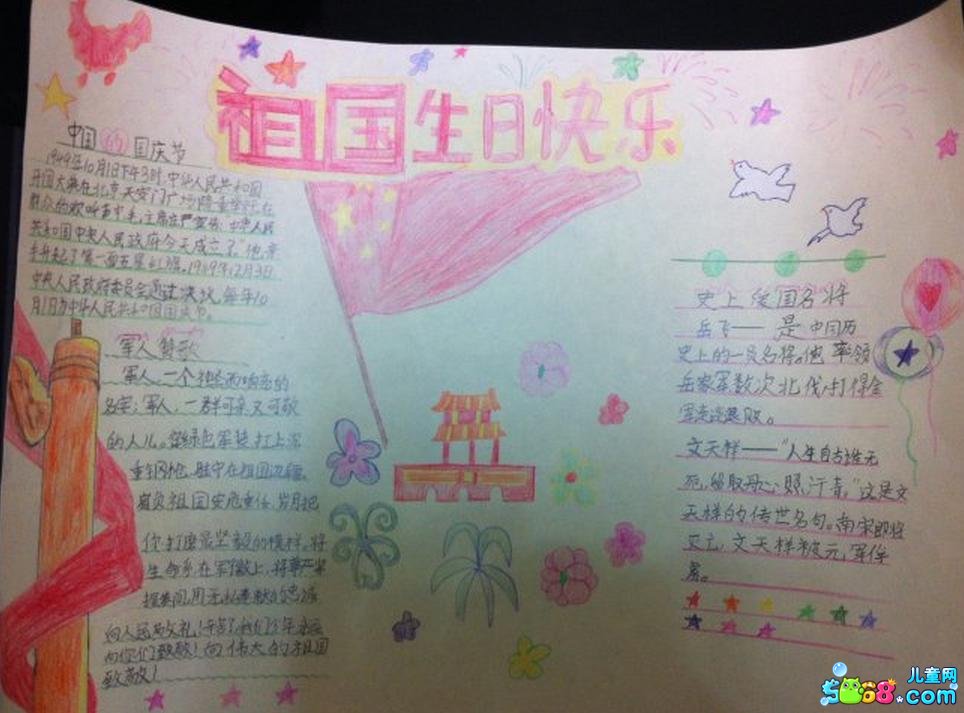 祖国生日快乐
中国的国庆节
1949年10月1日下午3时,中华人民共和国
开国大典在北京天安门广场隆重举行,在
群众的欢呼声中毛主席庄严宣告:"中华人民
共和国中央人民政府今天成立了。"他亲
手升起了第一面五星红旗。1949年12月3日
中央人民政府委员会通过决议,每年10
月1日为中华人民共和国国庆节。
军人赞歌
军人,一个神圣而响亮的
名字;军人,一群可亲又可敬
的人儿。绿色军装,扛上深
重钢枪,驻守在祖国边疆。
肩负祖国安危重任,岁月把
你打磨最坚毅的模样。将
生命系在军徽上,将
用无私奉献的忠诚
向人民敬礼!
向你们致敬!向伟大的祖国
致敬!
史上爱国名将
岳飞——是中国历
史上的一员名将。他率领
岳家军数次北伐,打得金
军连连退败。
文天祥——"人生自古谁无
死,留取丹心照汗青。"这是文
天祥的传世名句。南宋即将
灭亡,文天祥被元军俘
虏。
儿童网
5068.com